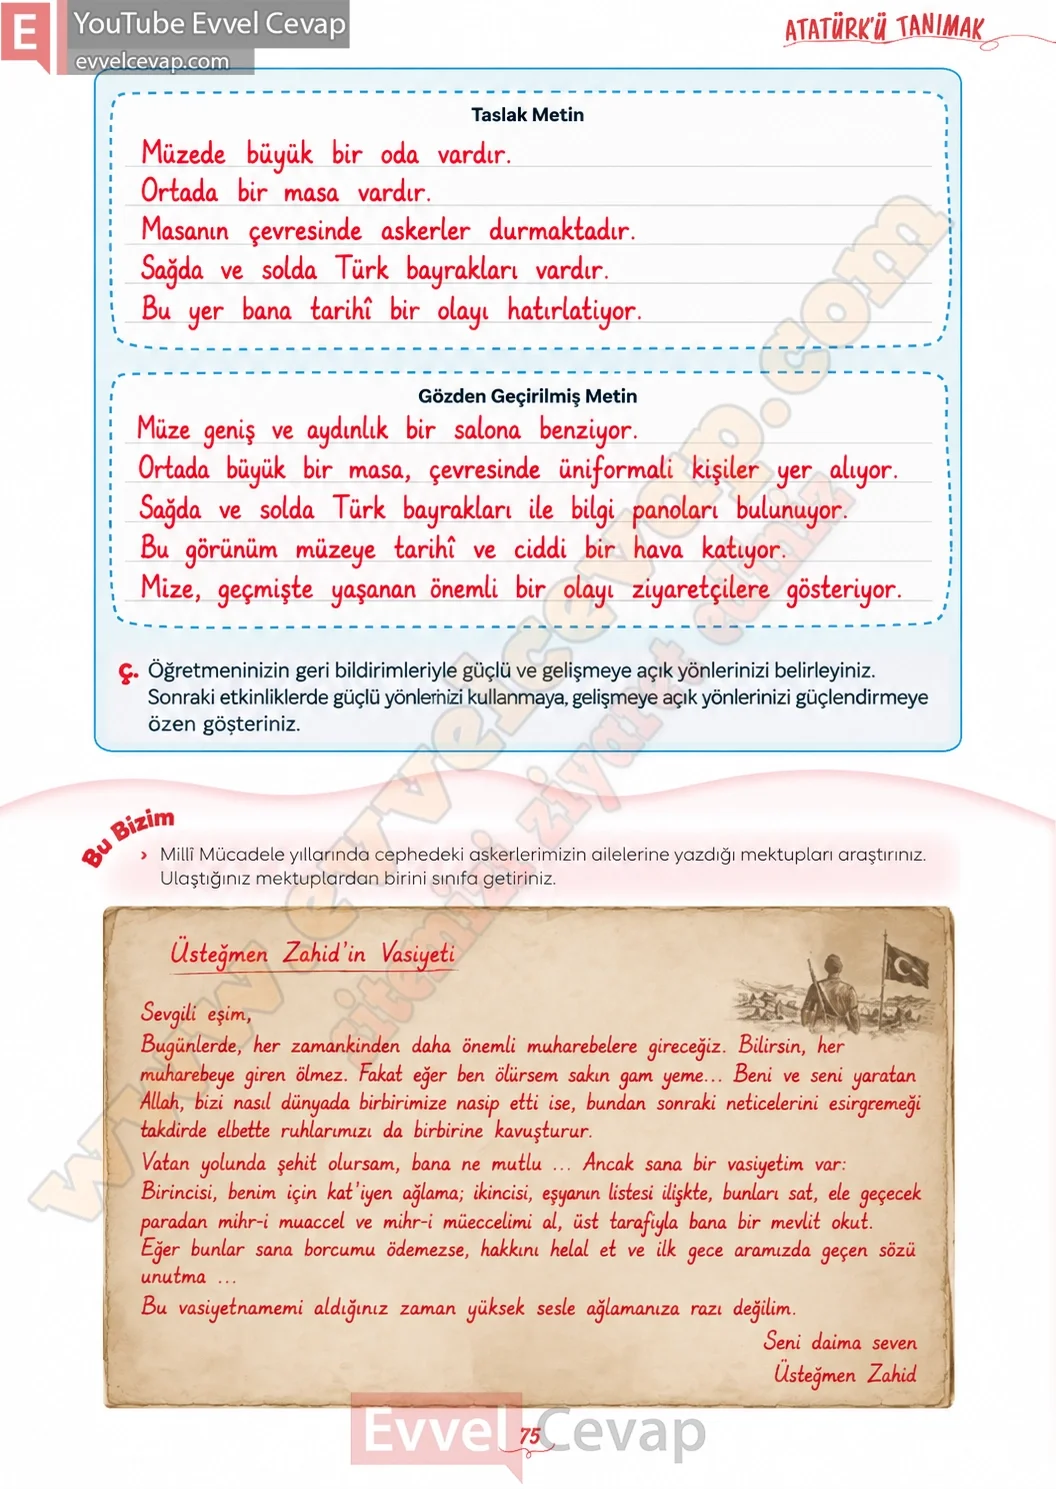 E
YouTube Evvel Cevap
evvelcevap.com
ATATÜRK'Ü TANIMAK
Taslak Metin
Müzede büyük bir oda vardır.
Ortada bir masa vardır.
Masanın çevresinde askerler durmaktadır.
Sağda ve solda Türk bayrakları vardır.
Bu yer bana tarihî bir olayı hatırlatiyor.
Gözden Geçirilmiş Metin
Müze geniş ve aydınlık bir salona benziyor.
Ortada büyük bir masa, çevresinde üniformali kişiler yer alıyor.
Sağda ve solda Türk bayrakları ile bilgi panoları bulunuyor.
Bu görünüm müzeye tarihî ve ciddi bir hava katıyor.
Mize, geçmişte yaşanan önemli bir olayı ziyaretçilere gösteriyor.
Ç. Öğretmeninizin geri bildirimleriyle güçlü ve gelişmeye açık yönlerinizi belirleyiniz.
Sonraki etkinliklerde güçlü yönlerinizi kullanmaya, gelişmeye açık yönlerinizi güçlendirmeye
özen gösteriniz.
Bu Bizim
› Millî Mücadele yıllarında cephedeki askerlerimizin ailelerine yazdığı mektupları araştırınız.
Ulaştığınız mektuplardan birini sınıfa getiriniz.
Üsteğmen Zahid'in Vasiyeti
Sevgili eşim,
Bugünlerde, her zamankinden daha önemli muharebelere gireceğiz. Bilirsin, her
muharebeye giren ölmez. Fakat eğer ben ölürsem sakın gam yeme... Beni ve seni yaratan
Allah, bizi nasıl dünyada birbirimize nasip etti ise, bundan sonraki neticelerini esirgremeği
takdirde elbette ruhlarımızı da birbirine kavuşturur.
Vatan yolunda şehit olursam, bana ne mutlu ... Ancak sana bir vasiyetim var:
Birincisi, benim için kat'iyen ağlama; ikincisi, eşyanın listesi ilişkte, bunları sat, ele geçecek
paradan mihr-i muaccel ve mihr-i müeccelimi al, üst tarafiyla bana bir mevlit okut.
Eğer bunlar sana borcumu ödemezse, hakkını helal et ve ilk gece aramızda geçen sözü
unutma ...
Bu vasiyetnamemi aldığınız zaman yüksek sesle ağlamanıza razı değilim.
Seni daima seven
Üsteğmen Zahid
www.evvelcevap.com
sitemizi ziyaret ediniz
Evvel Cevap
75